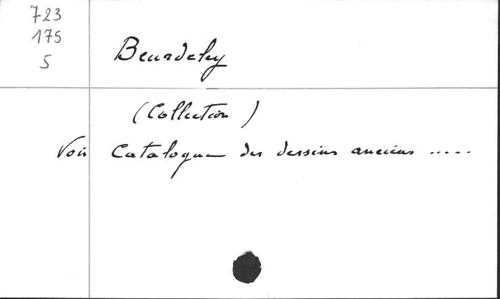 723
175
5
Beurdeley
(Collection)
Voir Catalogue des dessins anciens .....